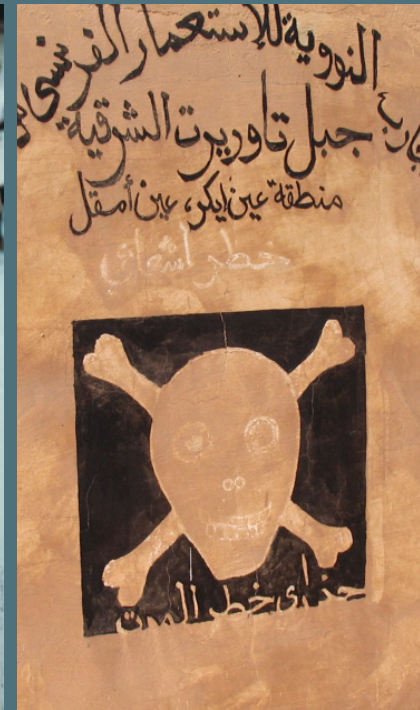 النووية للاستعمار الفرنسي
جبل تاوريرت الشرقية
منطقة عين ايكر، عين أمقل
خطر اشعاعي
حذاري خطر الموت